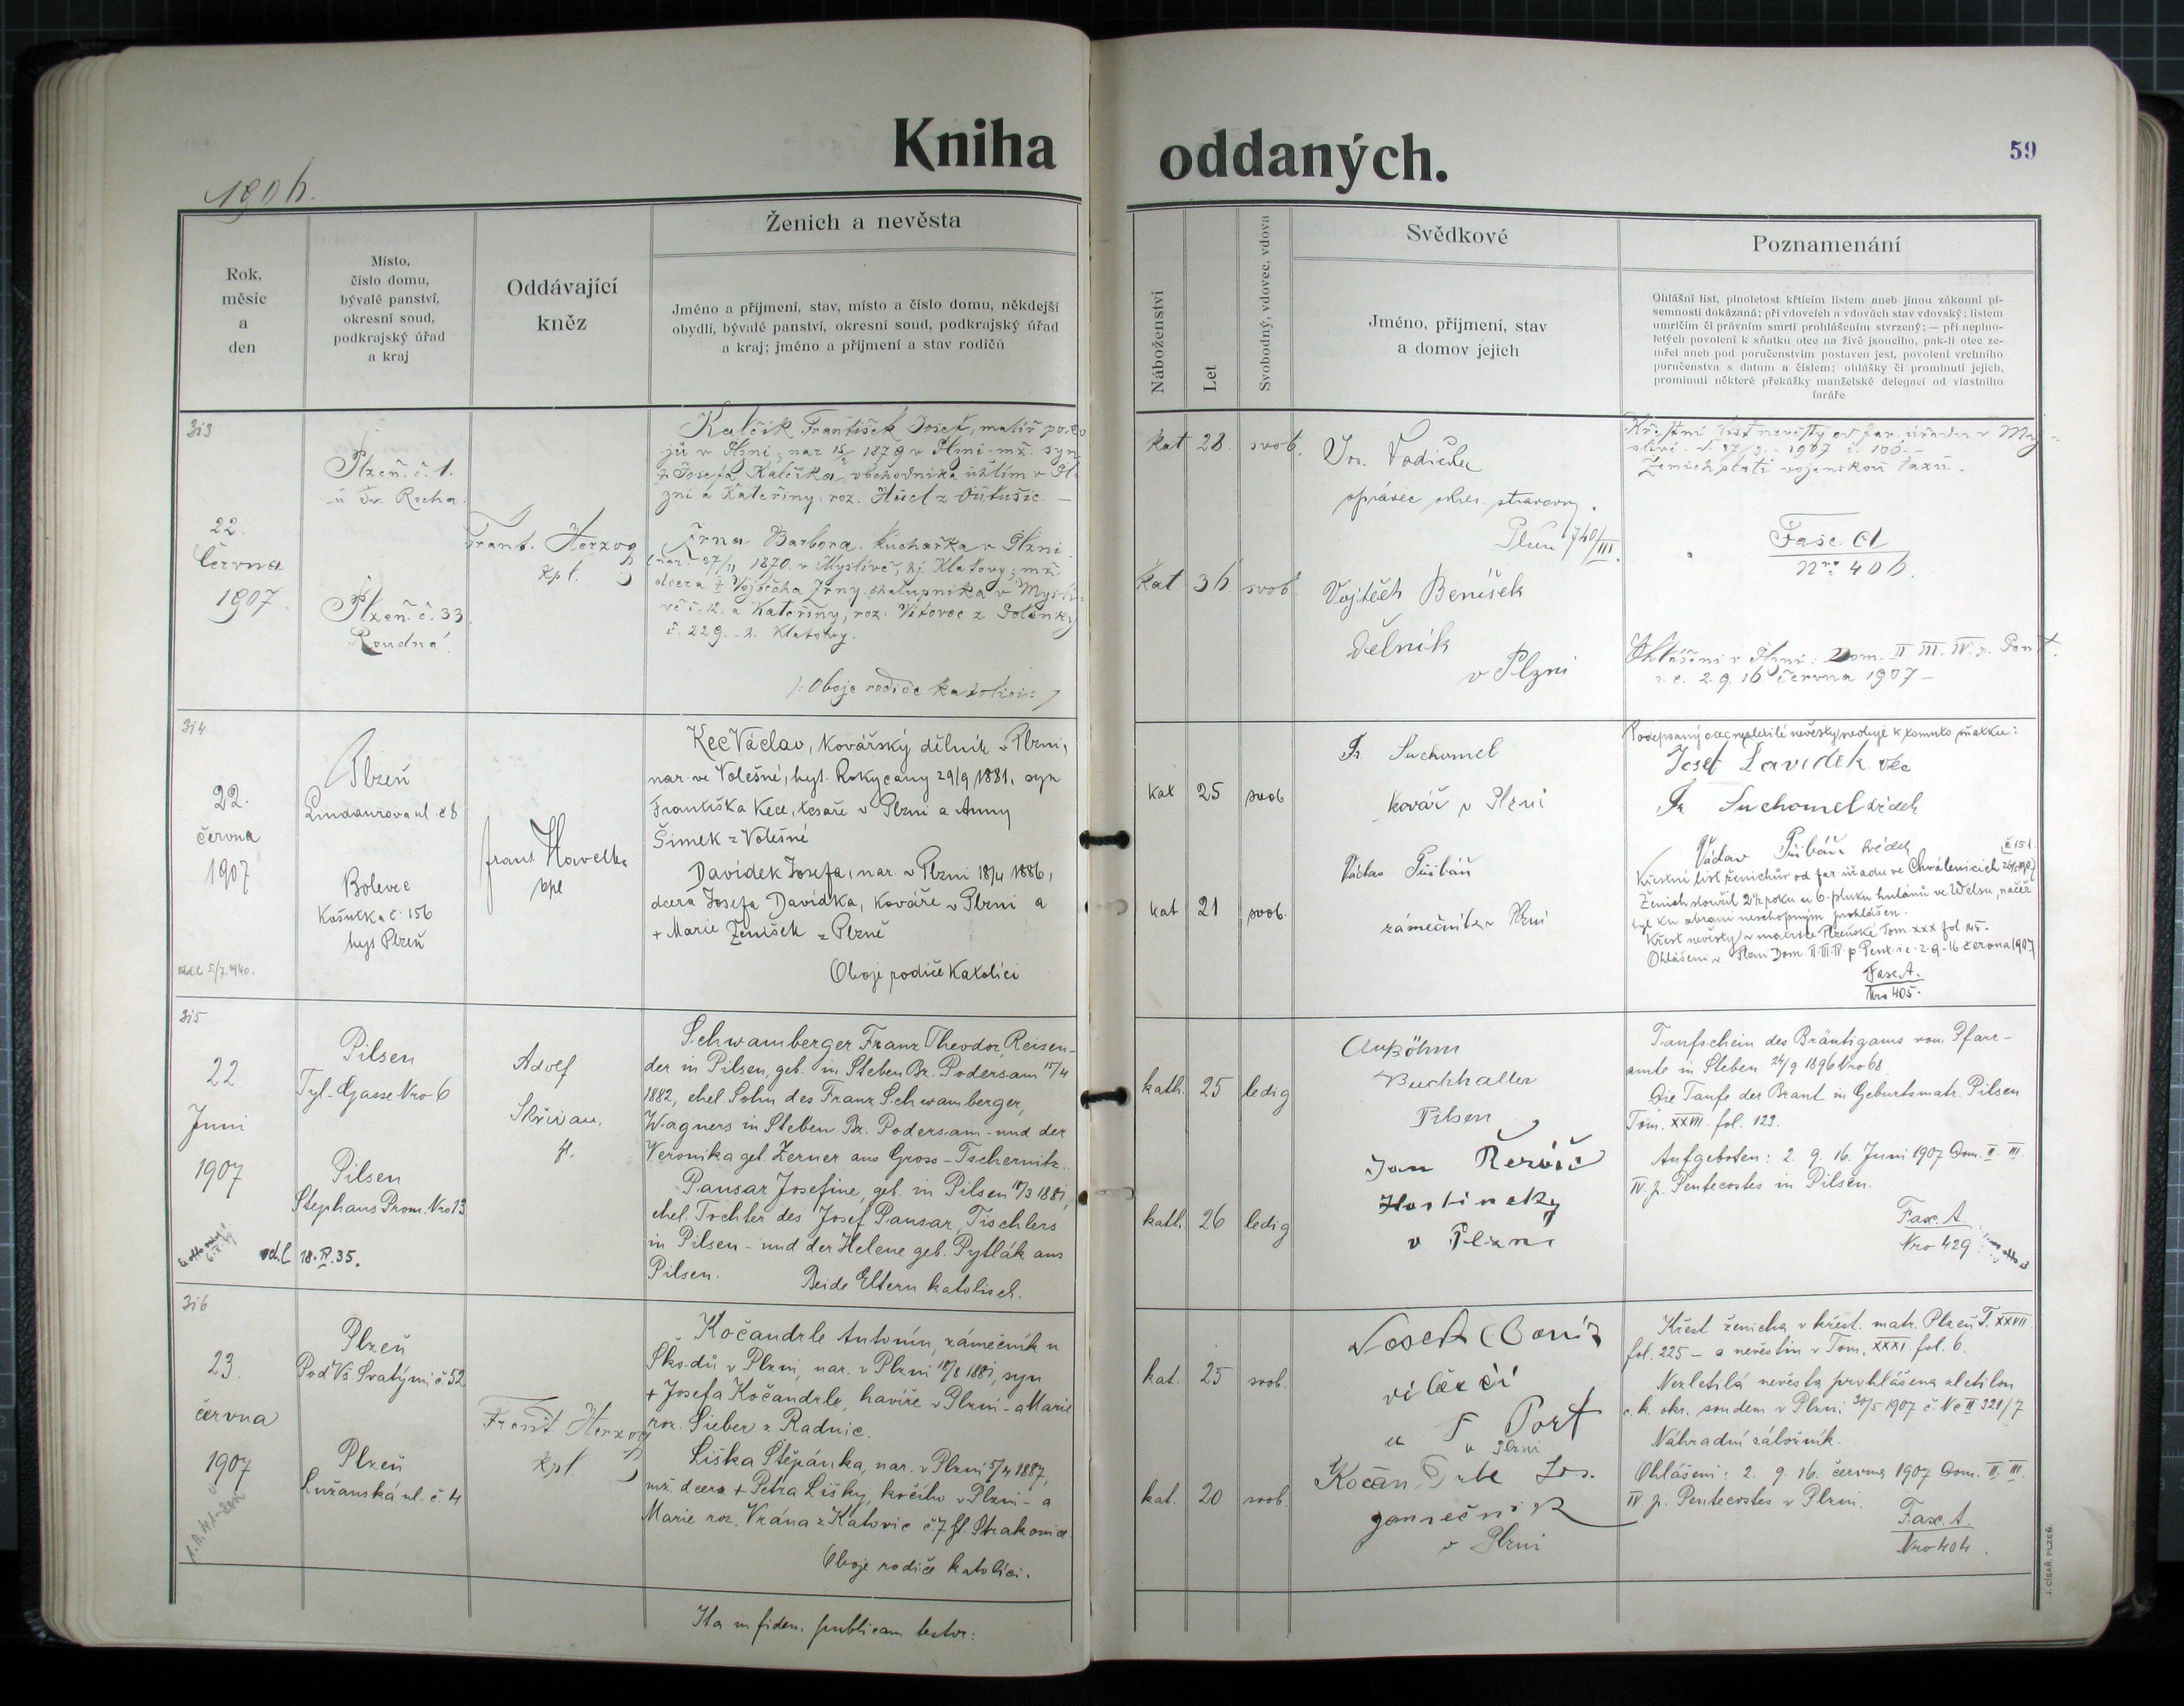 Kniha oddaných.
59
190h.
Rok,
měsíc
a
den
Místo,
číslo domu,
bývalé panství,
okresní soud,
podkrajský úřad
a kraj
Oddávající
kněz
Ženich a nevěsta
Jméno a příjmení, stav, místo a číslo domu, někdejší
obydlí, bývalé panství, okresní soud, podkrajský úřad
a kraj; jméno a příjmení a stav rodičů
Náboženství
Let
Svobodný, vdovec, vdova
Svědkové
Jméno, příjmení, stav
a domov jejich
Poznamenání
Ohlášní list, plnoletost křticím listem aneb jinou zákonní pí-
semností dokázaná; při vdovcích a vdovách stav vdovský; listem
umrlčím či právním smrti prohlášením stvrzený; — při neplno-
letých povolení k sňatku otce na živě jsoucího, pak-li otec ze-
mřel aneb pod poručenstvím postaven jest, povolení vrchního
poručenstva s datum a číslem; ohlášky či prominutí jejich,
prominutí některé překážky manželské delegací od vlastního
faráře
313
22.
června
1907.
Plzeň. č. 1.
u Sv. Rocha.
Plzeň. č. 33.
Roudná.
Frant. Herzog
kpl.
Kalčík František Josef, malíř poko
jů v Plzni, nar. 15/2 1879 v Plzni mž. syn
† Josefa Kalčíka, obchodníka uhlím v Pl-
zni a Kateřiny, roz.
Barbora, kuchařka v Plzni
1870 v Myslívě, hj. Klatovy; mž.
dcera † Vojtěcha chalupníka v Mysli-
vě č. 12. a Kateřiny, roz. Vítovec z
č. 229. Klatovy.
/: Oboje rodiče katolíci: /
kat 28. svob.
kat. 36. svob.
Jos. Vodička
správce okres. stravovny.
Plzeň 740/III.
Vojtěch Beníšek
dělník
v Plzni
Křestní list nevěsty od far. úřadu v My-
slívě 1907 č. 100.-
Ženich platí vojenskou taxu.
Fasc. A
Nro 406.
Ohlášeni v Plzni: Dom. II. III. IV. p. Pent.
i. e. 2. 9. 16 června 1907 –
314
22.
června
1907
odl. 5/7. 1940.
Plzeň
Lindaurova ul. č 8
Bolevec
Košutka č. 156
hejt Plzeň
Frant. Havelka
kpl
Kec Václav, kovářský dělník v Plzni,
nar. ve Volešné, hejt. Rokycany 29/9 1881, syn
Františka Kece, tesaře v Plzni a Anny
Šimek z Volešné
Davídek Josefa, nar. v Plzni 18/4 1886,
dcera Josefa Davídka, kováře v Plzni a
+ Marie Ženíšek z Plzně
Oboje rodiče Katolíci
kat 25 svob
kat 21 svob.
Fr. Suchomel
kovář v Plzni
Václav Přibáň
zámečník v Plzni
Podepsaný otec nezletilé nevěsty svoluje k tomuto sňatku:
Josef Davídek otec
Fr. Suchomel svědek
Václav Přibáň svědek
Křestní list ženichův od far úřadu ve Chválenicích
č 151.
Ženich sloužil 2 1/2 roku u 6. pluku hulánů ve Welsu, načež
byl ku zbrani neschopným prohlášen.
Křest nevěsty v matrice Plzeňské Tom. XXX fol. 145.
Ohlášeni v Plzni Dom. II. III. IV. p. Pent. i e. 2. 9. 16 června 1907
Fasc A.
Nro 405.
315
22
Juni
1907
odl. 18. IV. 35.
Pilsen
Tyl-Gasse Nro 6
Pilsen
Stephans Prom. Nro 13
Adolf
Skřivan,
kpl.
Schwamberger Franz Theodor, Reisen-
der in Pilsen, geb. in Steben Bz. Podersam 15/4
1882, ehel. Sohn des Franz Schwamberger,
Wagners in Steben Bz. Podersam – und der
Veronika geb. Zerner aus Gross-Tschernitz.
Pansar Josefine, geb. in Pilsen 18/3 1881,
ehel. Tochter des Josef Pansar, Tischlers
in Pilsen – und der Helene geb. Pytlák aus
Pilsen. Beide Eltern katolisch.
kath. 25 ledig
kath. 26 ledig
Buchhalter
Pilsen
Jan Řeřicha
Hostinský
v Plzni
Taufschein des Bräutigams vom Pfarr-
amte in Steben 24/9 1896 Nro 68.
Die Taufe der Braut in Geburtsmatr. Pilsen
Tom. XXVII. fol. 123.
Aufgeboten: 2. 9. 16. Juni 1907 Dom. II. III.
IV. p. Pentecostes in Pilsen.
Fasc. A.
Nro 429
316
23.
června
1907
Plzeň
Pod Vš. Svatými č. 52
Plzeň
Lužanská ul. č. 4
Frant Herzog
kpl.
Kočandrle Antonín, zámečník u
Škodů v Plzni, nar. v Plzni 18/8 1881, syn
+ Josefa Kočandrle, havíře v Plzni – a Marie
roz. Sieber z Radnic.
Liška Štěpánka, nar. v Plzni 5/4 1887,
mž. dcera + Petra Lišky, kočího v Plzni – a
Marie roz. Vrána z Katovic č. 7 hj. Strakonice
Oboje rodiče katolíci.
kat. 25 svob.
kat. 20 svob.
Josef
v Plzni
Kočandrle Jos.
zámečník
v Plzni
Křest ženicha v křest. matr. Plzeň T. XXVII.
fol. 225 – a nevěstin v Tom. XXXI. fol. 6.
Nezletilá nevěsta prohlášena zletilou
c. k. okr. soudem v Plzni 30/5 1907 č. Nc II 321/7
Náhradní záložník.
Ohlášeni: 2. 9. 16. června 1907 Dom. II. III.
IV p. Pentecostes v Plzni.
Fasc. A.
Nro 404.
Ita in fidem publicam testor:
J. CÍSAŘ, PLZEŇ.